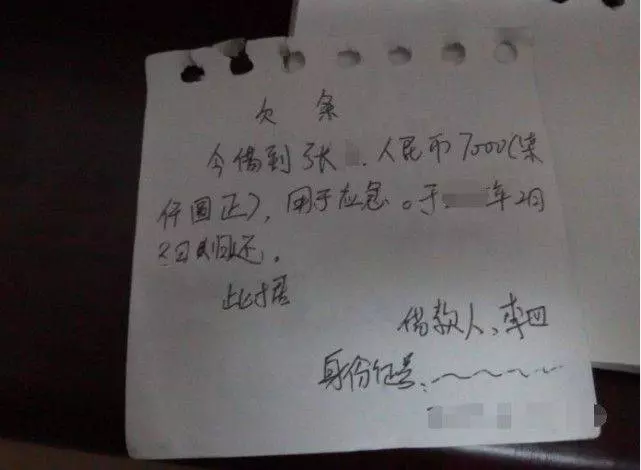 欠条
今借到张 、人民币7000(柒
仟圆正),用于应急。于 年2月
2日归还。
此据
借款人、李四
身份证号: